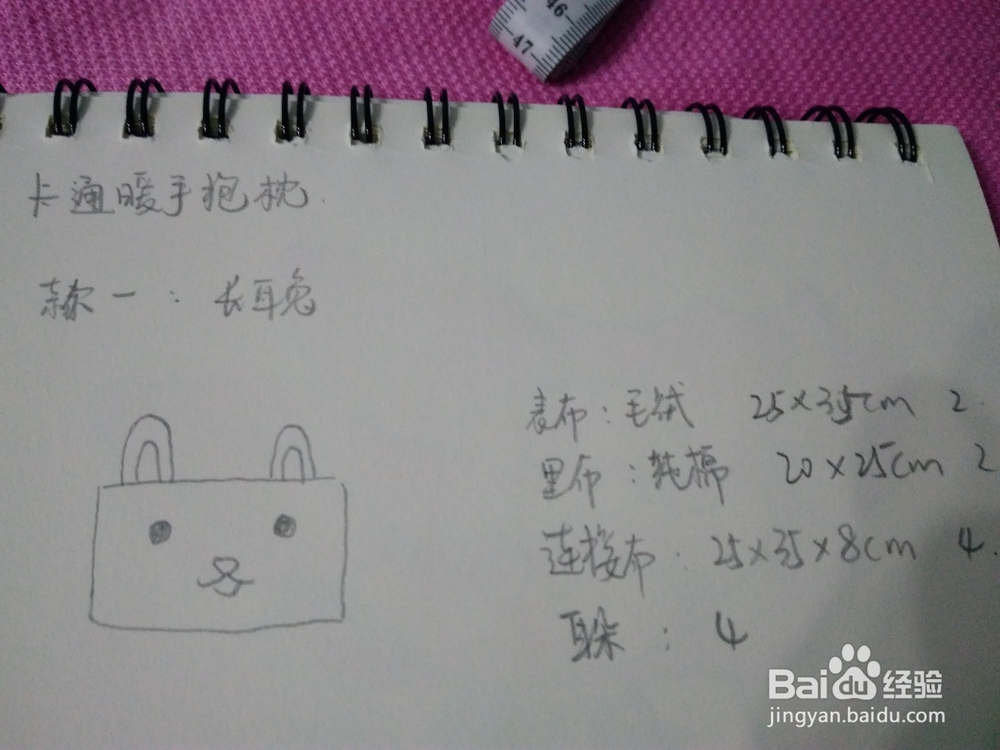 46
47
卡通暖手抱枕.
款一：长耳兔
表布：毛绒 25×35cm 2.
里布：纯棉 20×25cm 2
连接布：25×35×8cm 4.
耳朵：4
Baidu经验
jingyan.baidu.com